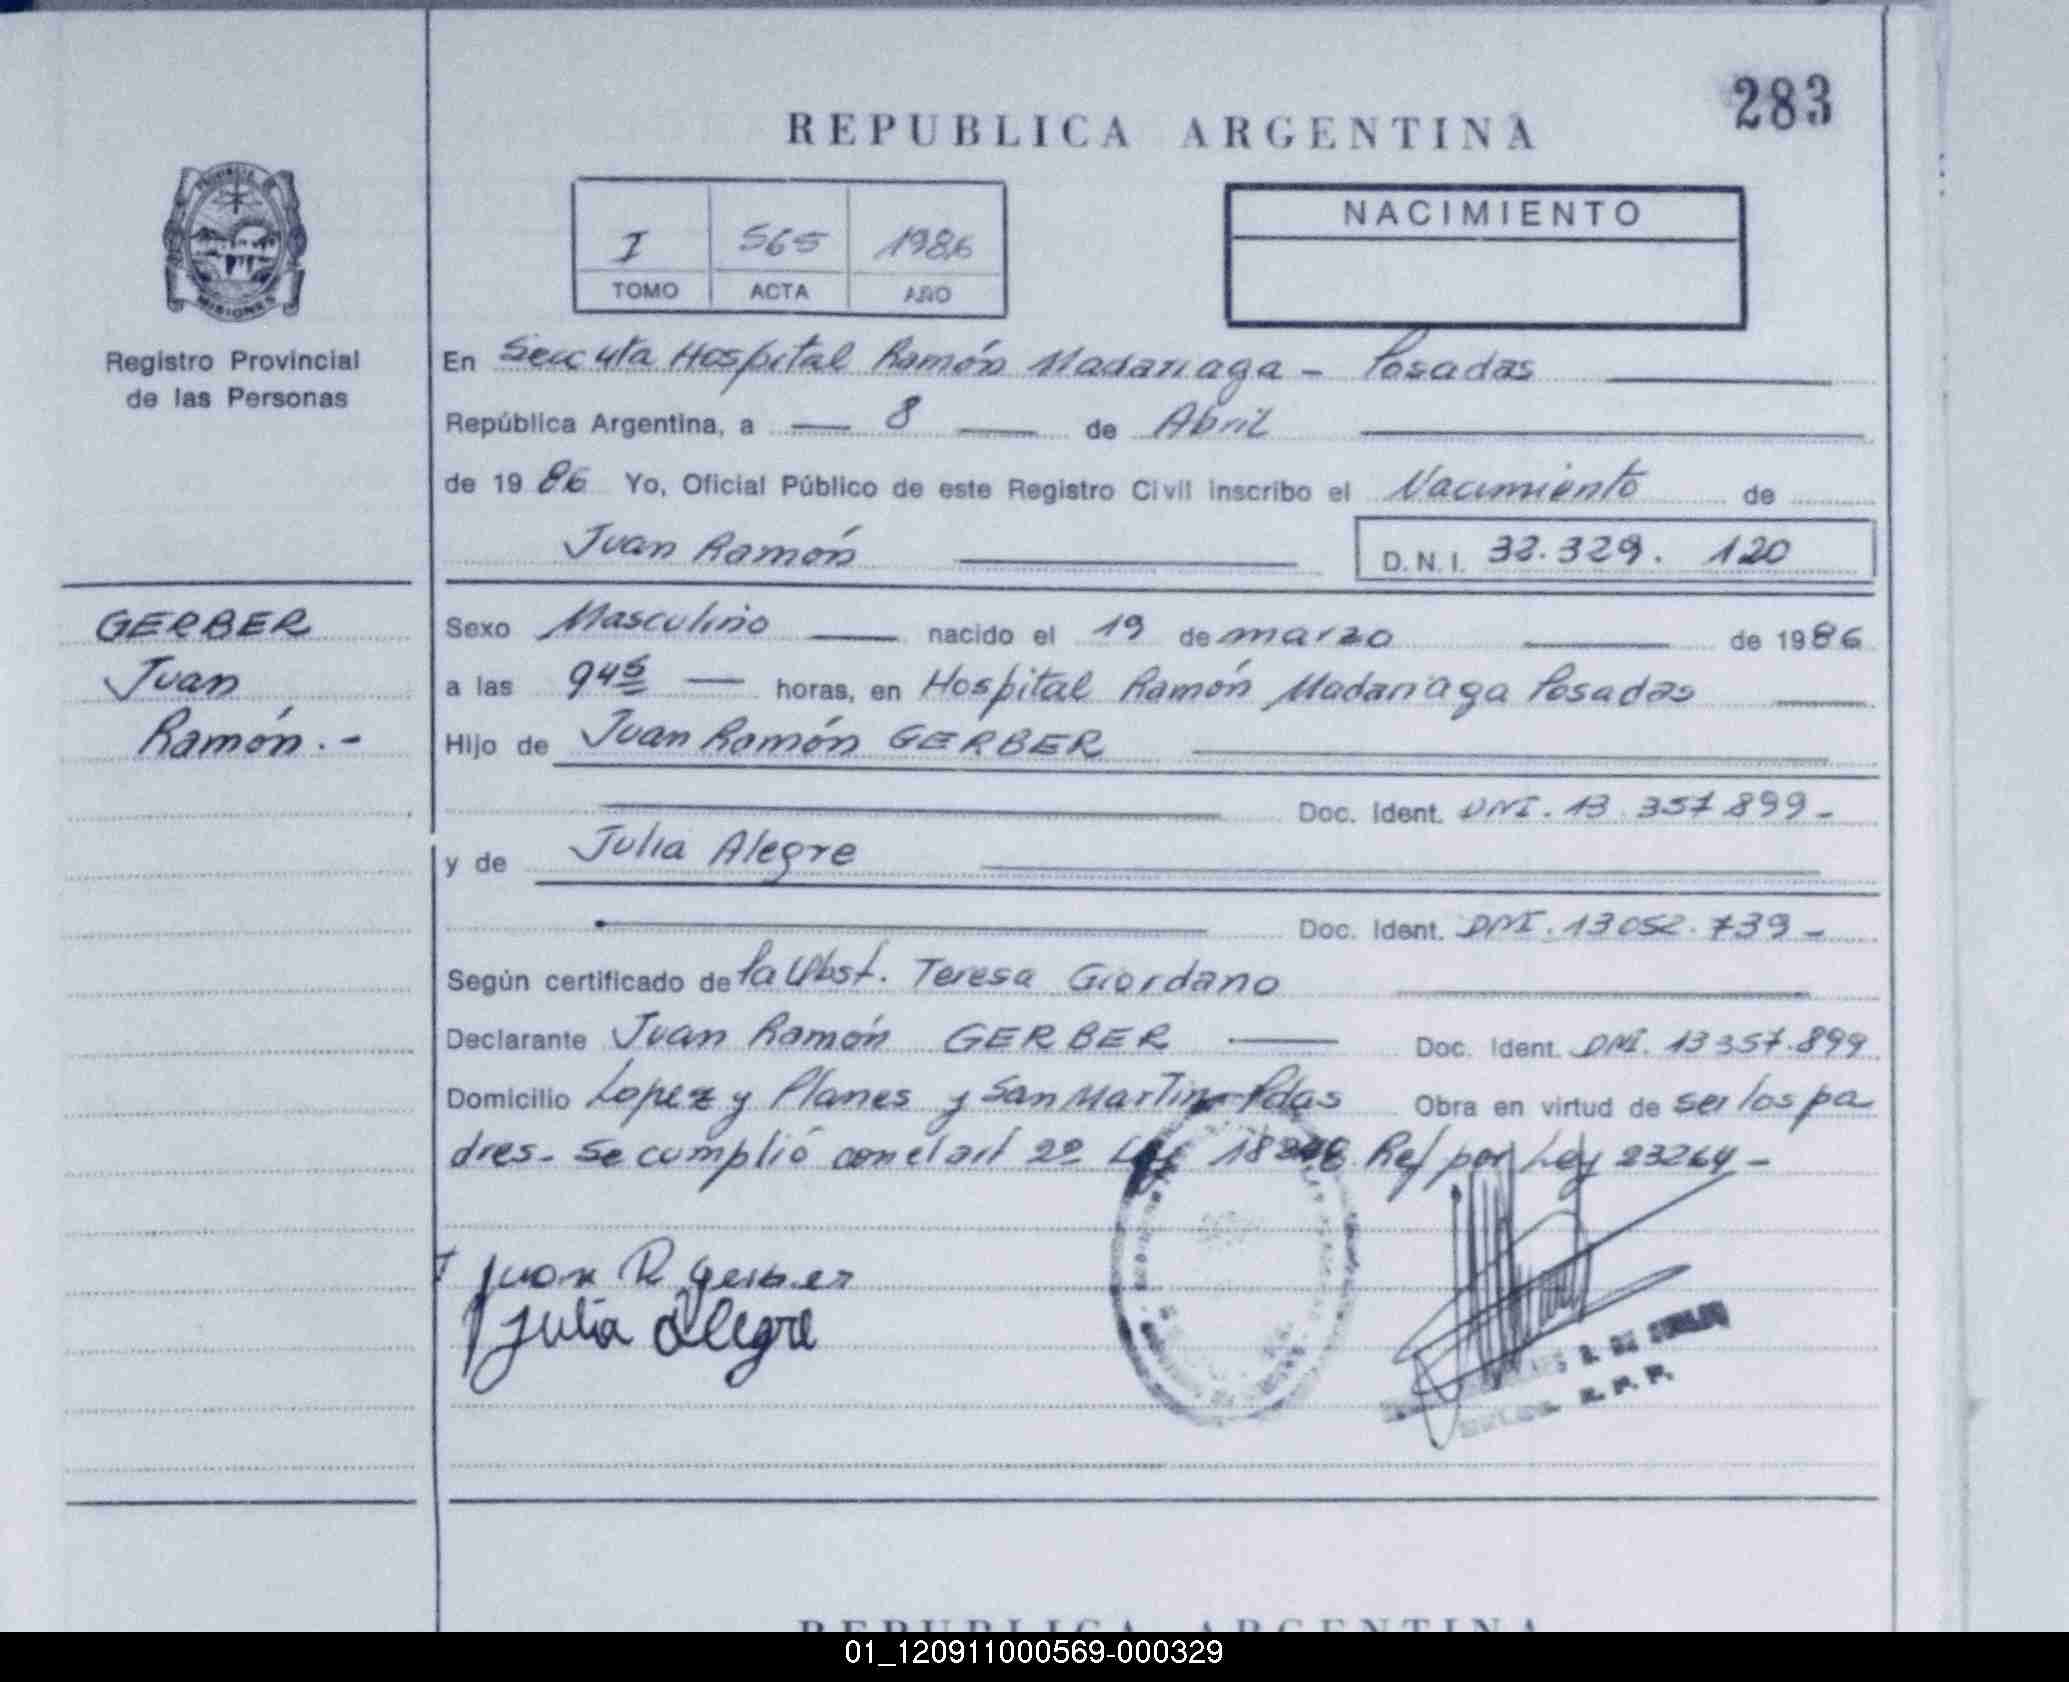 283
REPUBLICA ARGENTINA
PROVINCIA DE
MISIONES
I 565 1986
TOMO ACTA AÑO
NACIMIENTO
Registro Provincial
de las Personas
En Secc 4ta Hospital Ramón Madariaga - Posadas
República Argentina, a 8 de Abril
de 1986 Yo, Oficial Público de este Registro Civil inscribo el Nacimiento de
Juan Ramón D.N.I. 32.329. 120
GERBER
Juan
Ramón.-
Sexo Masculino nacido el 19 de marzo de 1986
a las 9 45 horas, en Hospital Ramón Madariaga Posadas
Hijo de Juan Ramón GERBER
Doc. Ident. DNI. 13.357.899-
y de Julia Alegre
Doc. Ident. DNI. 13052.739-
Según certificado de la Obst. Teresa Giordano
Declarante Juan Ramón GERBER Doc. Ident. DNI. 13357.899
Domicilio Lopez y Planes y San Martin-Pdas Obra en virtud de ser los pa
dres. Se cumplió con el art 2º Ley Ref por Ley 23264-
Juan R Gerber
Julia Alegre
R. P. P.
REPUBLICA ARGENTINA
01_120911000569-000329